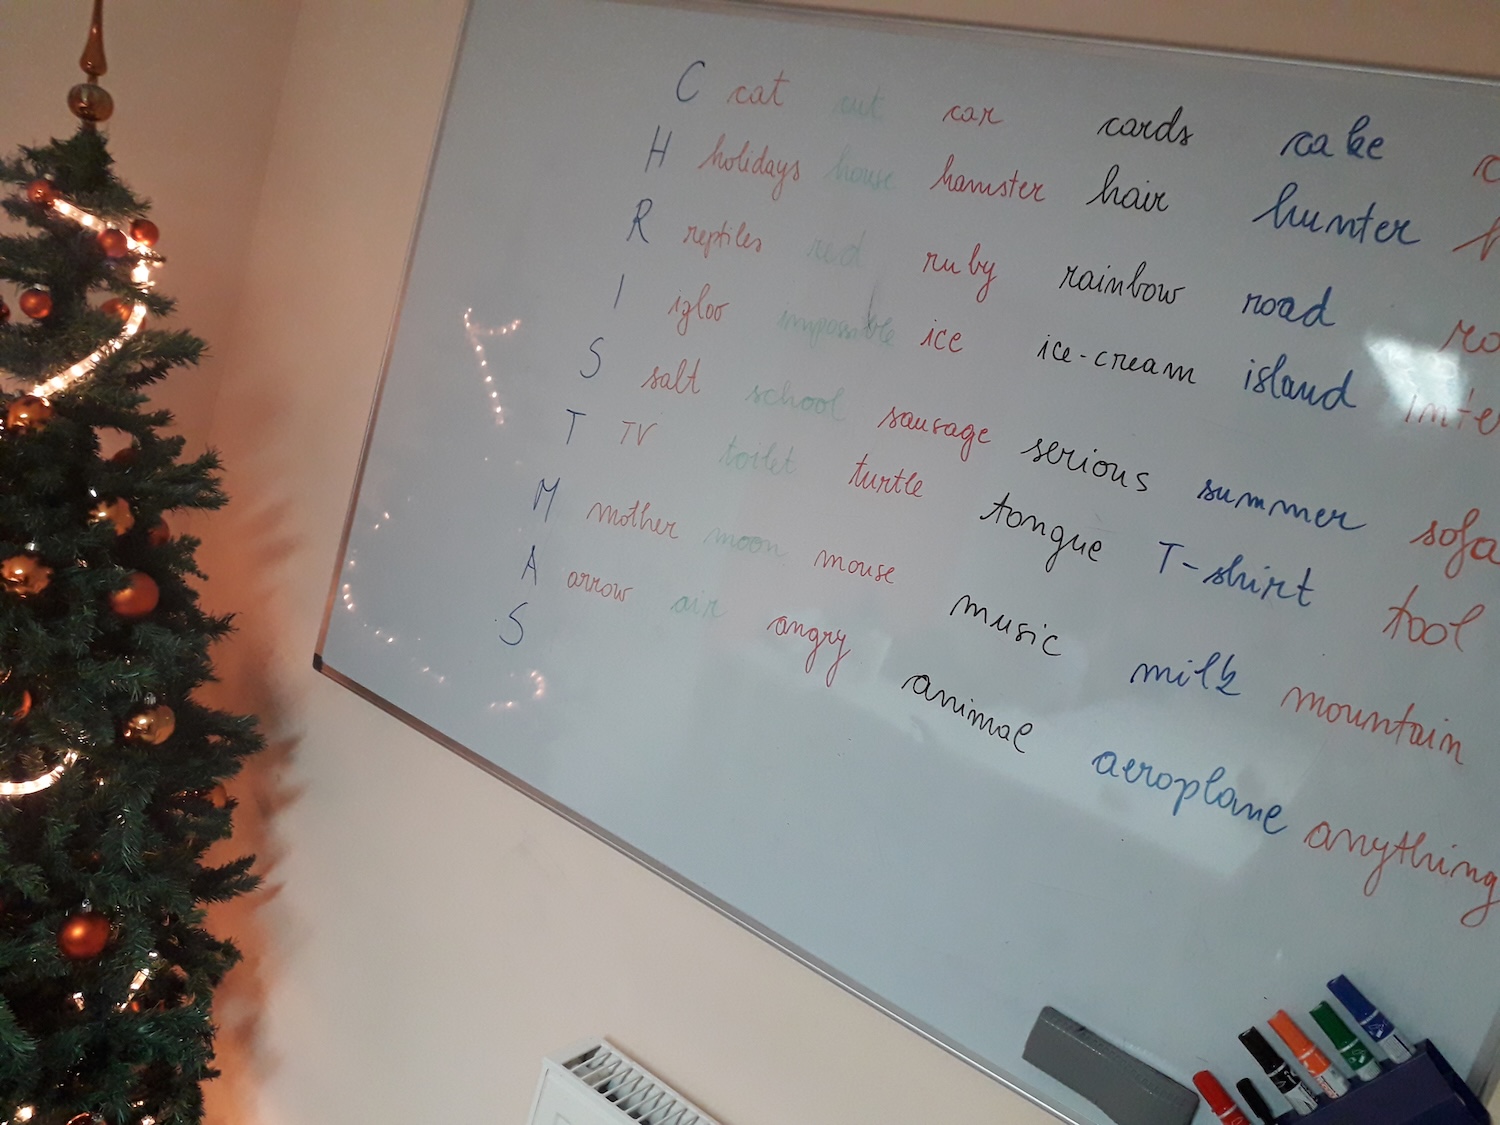 C cat cut car cards cake
H holidays house hamster hair hunter
R reptiles red ruby rainbow road
I igloo impossible ice ice-cream island
S salt school sausage serious summer sofa
T TV toilet turtle tongue T-shirt tool
M mother moon mouse music milk mountain
A arrow air angry animal aeroplane anything
S